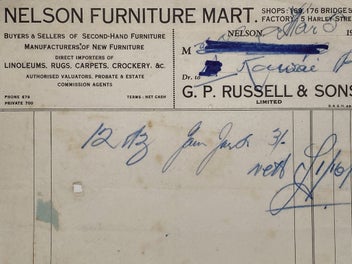 NELSON FURNITURE MART. SHOPS: 176 BRIDGE S
FACTORY: 5 HARLEY STREE
BUYERS & SELLERS OF SECOND-HAND FURNITURE
MANUFACTURERS OF NEW FURNITURE
DIRECT IMPORTERS OF
LINOLEUMS, RUGS, CARPETS, CROCKERY, &C.
AUTHORISED VALUATORS, PROBATE & ESTATE
COMMISSION AGENTS
PHONE 879
PRIVATE 700
TERMS - NETT CASH
NELSON, Mar 19
M
Dr. to
G. P. RUSSELL & SONS
LIMITED
12 Dz Jam Jars 3/-
nett £1/16/